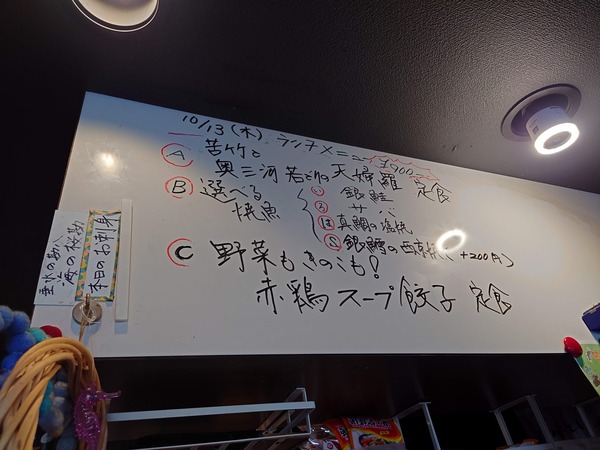 10/13(木) ランチメニュー ¥900
Ⓐ 苦竹と
奥三河若どりの天婦羅 定食
Ⓑ 選べる
焼魚
い 銀鮭
ろ サバ
は 真鯛の塩焼
Ⓢ 銀鱈の西京焼(+200円)
Ⓒ 野菜もきのこも!
赤鶏スープ餃子 定食
本日のお刺身